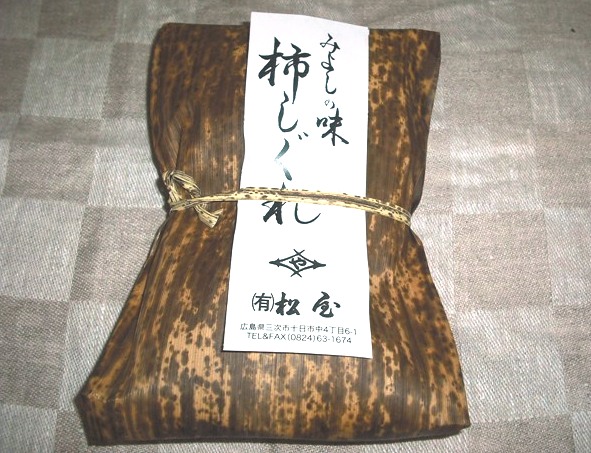 みよしの味
柿しぐれ
や
㈲松屋
広島県三次市十日市中4丁目6-1
TEL&FAX(0824)63-1674